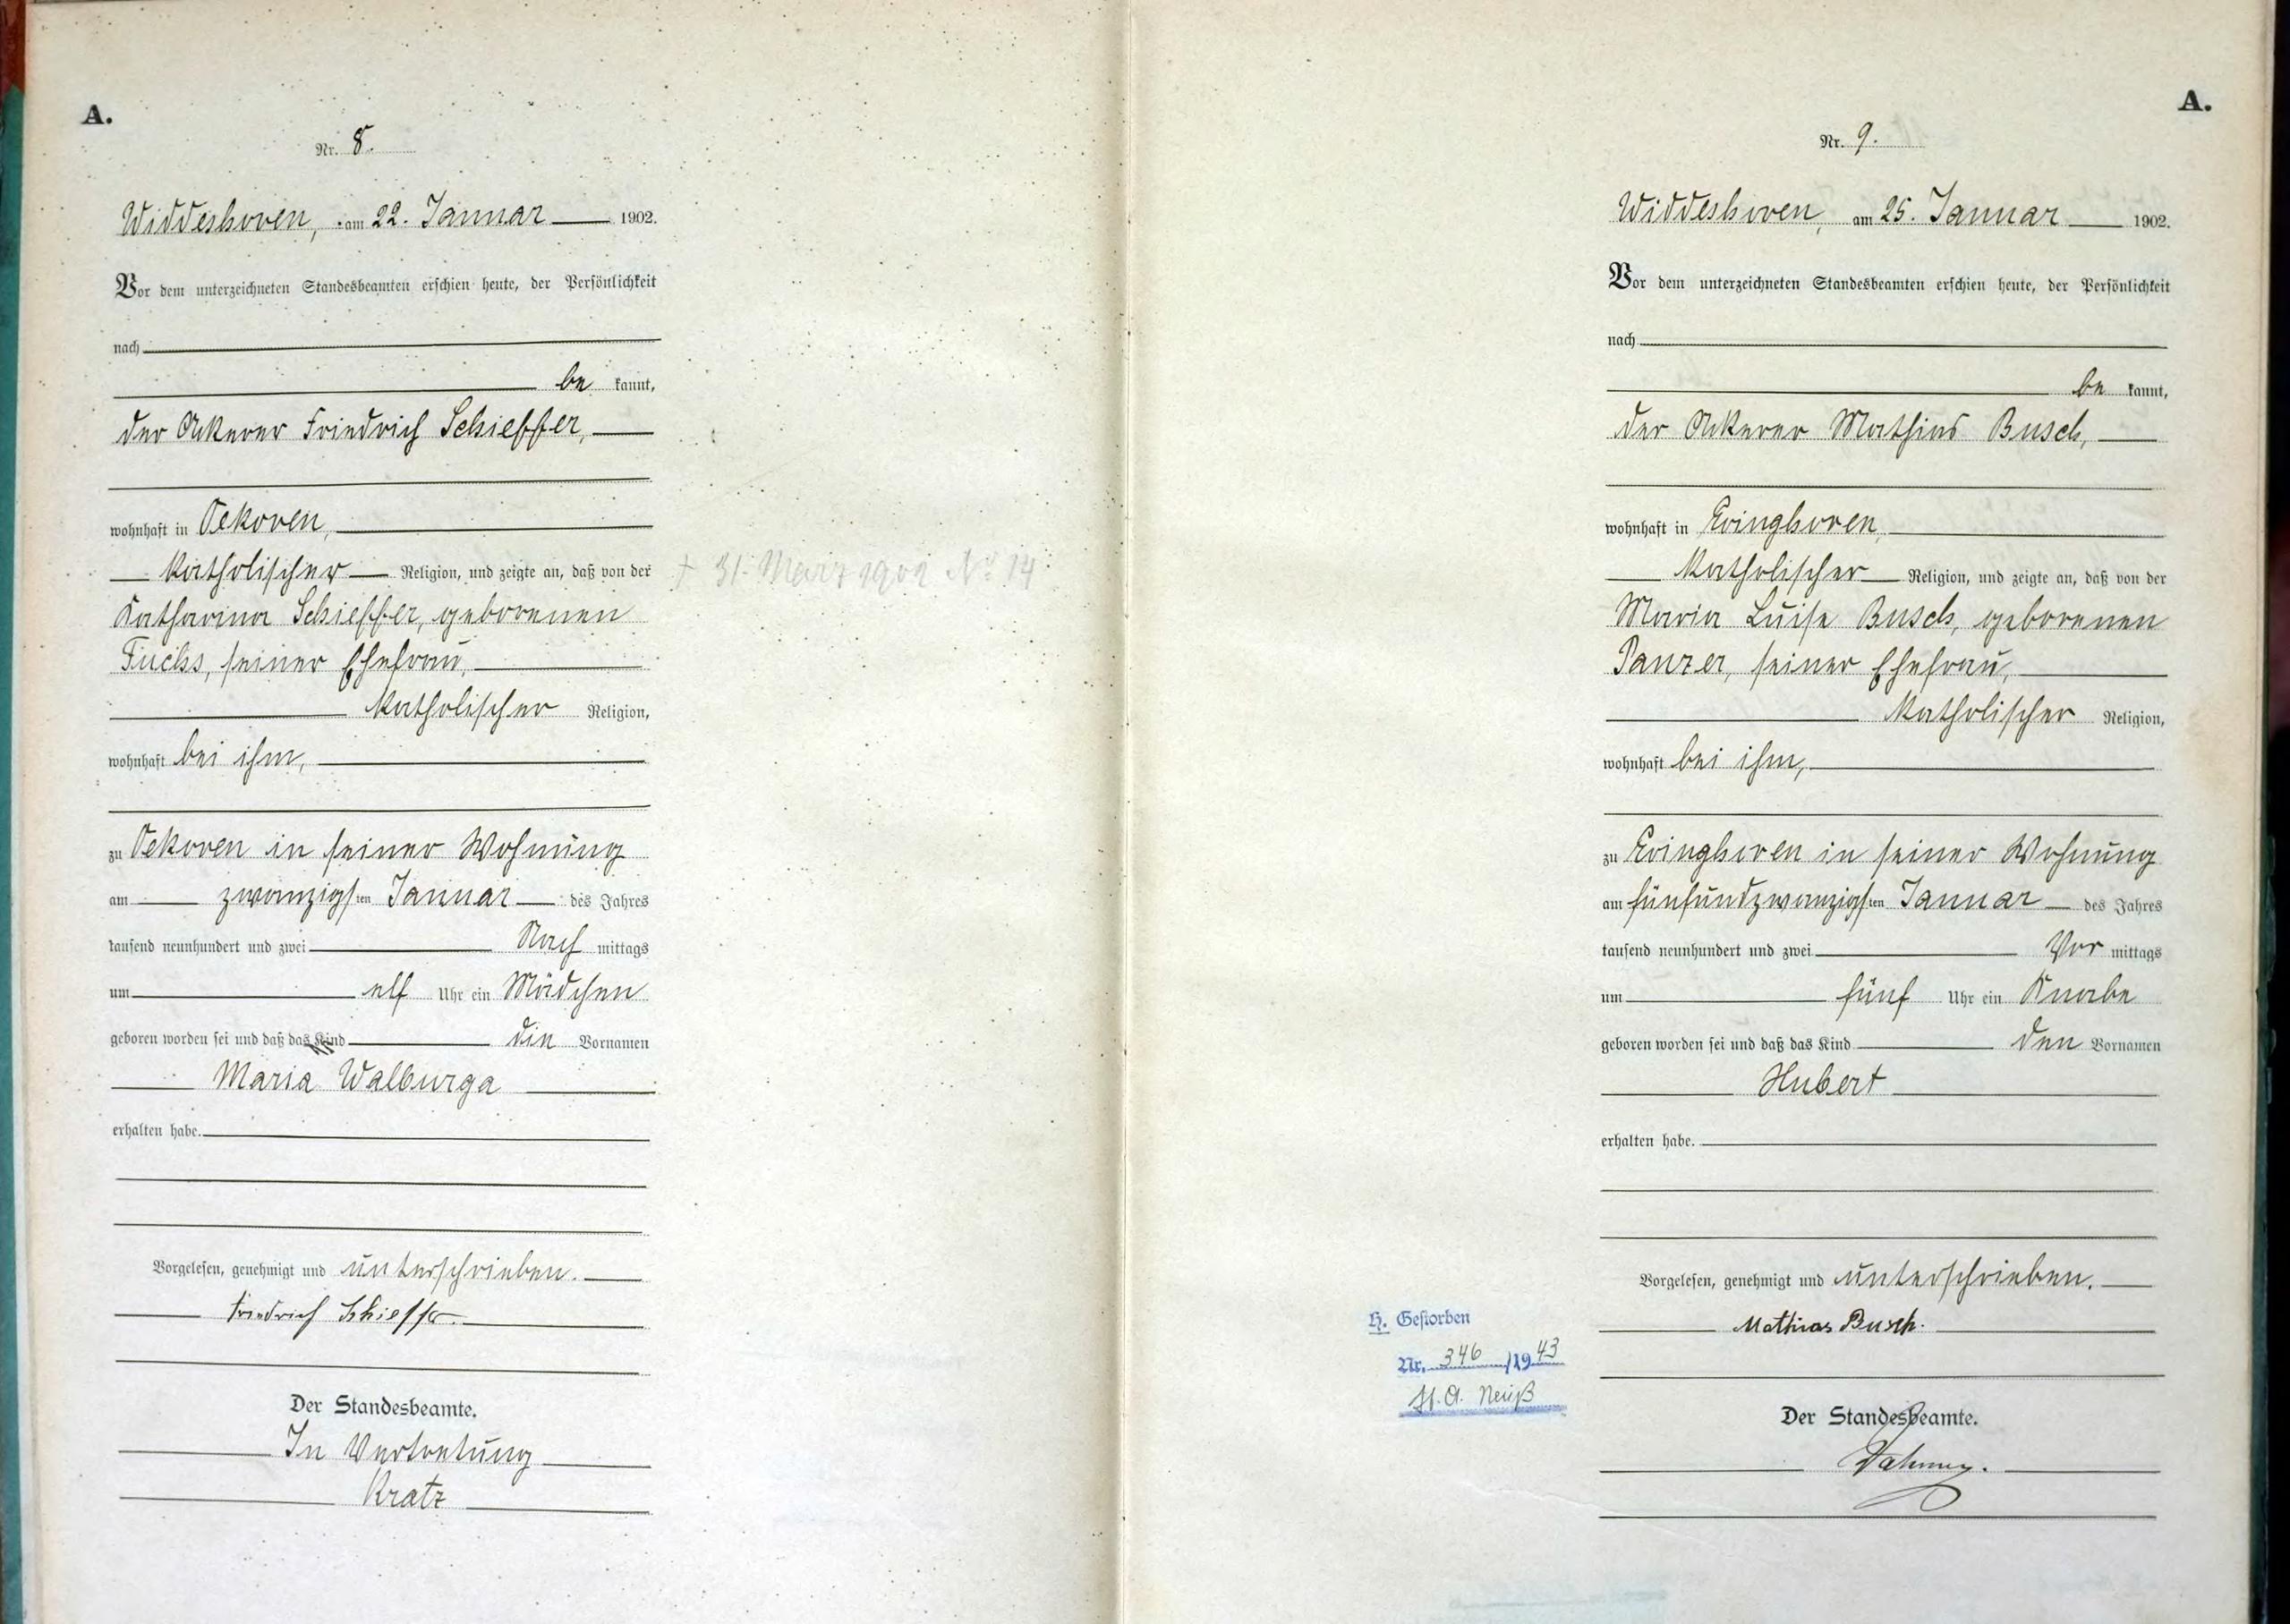 A.
Nr. 8.
Widdeshoven, am 22. Januar 1902.
Vor dem unterzeichneten Standesbeamten erschien heute, der Persönlichkeit
nach
be kannt,
der Ackerer Friedrich Schieffer,
wohnhaft in Oekoven,
katholischer Religion, und zeigte an, daß von der
Katharina Schieffer, geborenen
Fuchs, seiner Ehefrau,
katholischer Religion,
wohnhaft bei ihm,
zu Oekoven in seiner Wohnung
am zwanzigsten Januar des Jahres
tausend neunhundert und zwei Nach mittags
um elf Uhr ein Mädchen
geboren worden sei und daß das Kind die Vornamen
Maria Walburga
erhalten habe.
Vorgelesen, genehmigt und unterschrieben.
Friedrich Schieffer.
Der Standesbeamte.
In Vertretung
Kratz
† 31. März 1902 No 14
A.
Nr. 9.
Widdeshoven, am 25. Januar 1902.
Vor dem unterzeichneten Standesbeamten erschien heute, der Persönlichkeit
nach
be kannt,
der Ackerer Mathias Busch,
wohnhaft in Evinghoven,
katholischer Religion, und zeigte an, daß von der
Maria Luise Busch, geborenen
Panzer, seiner Ehefrau,
katholischer Religion,
wohnhaft bei ihm,
zu Evinghoven in seiner Wohnung
am fünfundzwanzigsten Januar des Jahres
tausend neunhundert und zwei Vor mittags
um fünf Uhr ein Knabe
geboren worden sei und daß das Kind den Vornamen
Hubert
erhalten habe.
Vorgelesen, genehmigt und unterschrieben.
Mathias Busch.
Der Standesbeamte.
H. Gestorben
Nr. 346 /1943
St. A. Neuß